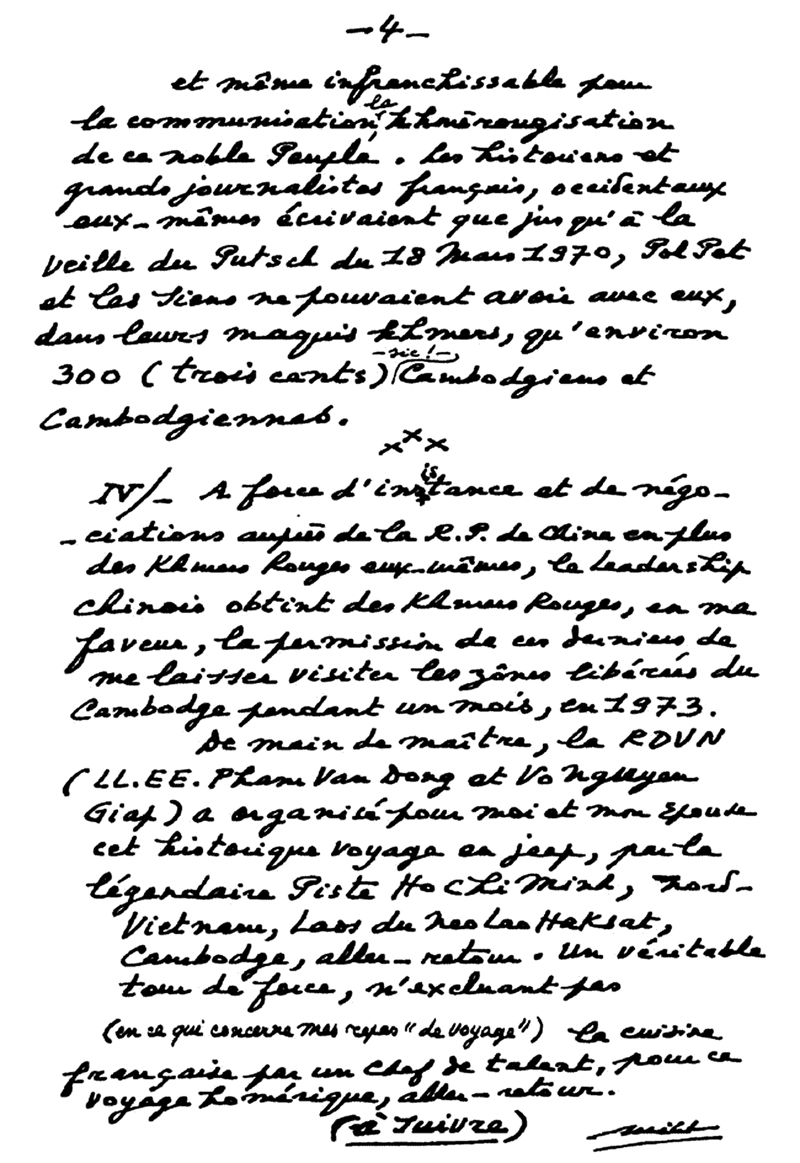 — 4 —
et même infranchissable pour
la communisation, la khmérougisation
de ce noble Peuple. Les historiens et
grands journalistes français, occidentaux
eux-mêmes écrivaient que jusqu'à la
veille du Putsch du 18 Mars 1970, Pol Pot
et les siens ne pouvaient avoir avec eux,
dans leurs maquis khmers, qu'environ
300 (trois cents) - sic ! - Cambodgiens et
Cambodgiennes.
x x x
IV/- A force d'instance et de négo-
-ciations auprès de la R.P. de Chine en plus
des Khmers Rouges eux-mêmes, le leadership
chinois obtint des Khmers Rouges, en ma
faveur, la permission de ces derniers de
me laisser visiter les zônes libérées du
Cambodge pendant un mois, en 1973.
De main de maître, la RDVN
(LL.EE. Pham Van Dong et Vo Nguyen
Giap) a organisé pour moi et mon Epouse
cet historique voyage en jeep, par la
légendaire Piste Ho Chi Minh, Nord-
Vietnam, Laos du Neo Lao Haksat,
Cambodge, aller-retour. Un véritable
tour de force, n'excluant pas
(en ce qui concerne mes repas "de voyage") la cuisine
française par un Chef de talent, pour ce
voyage homérique, aller-retour.
(à suivre)